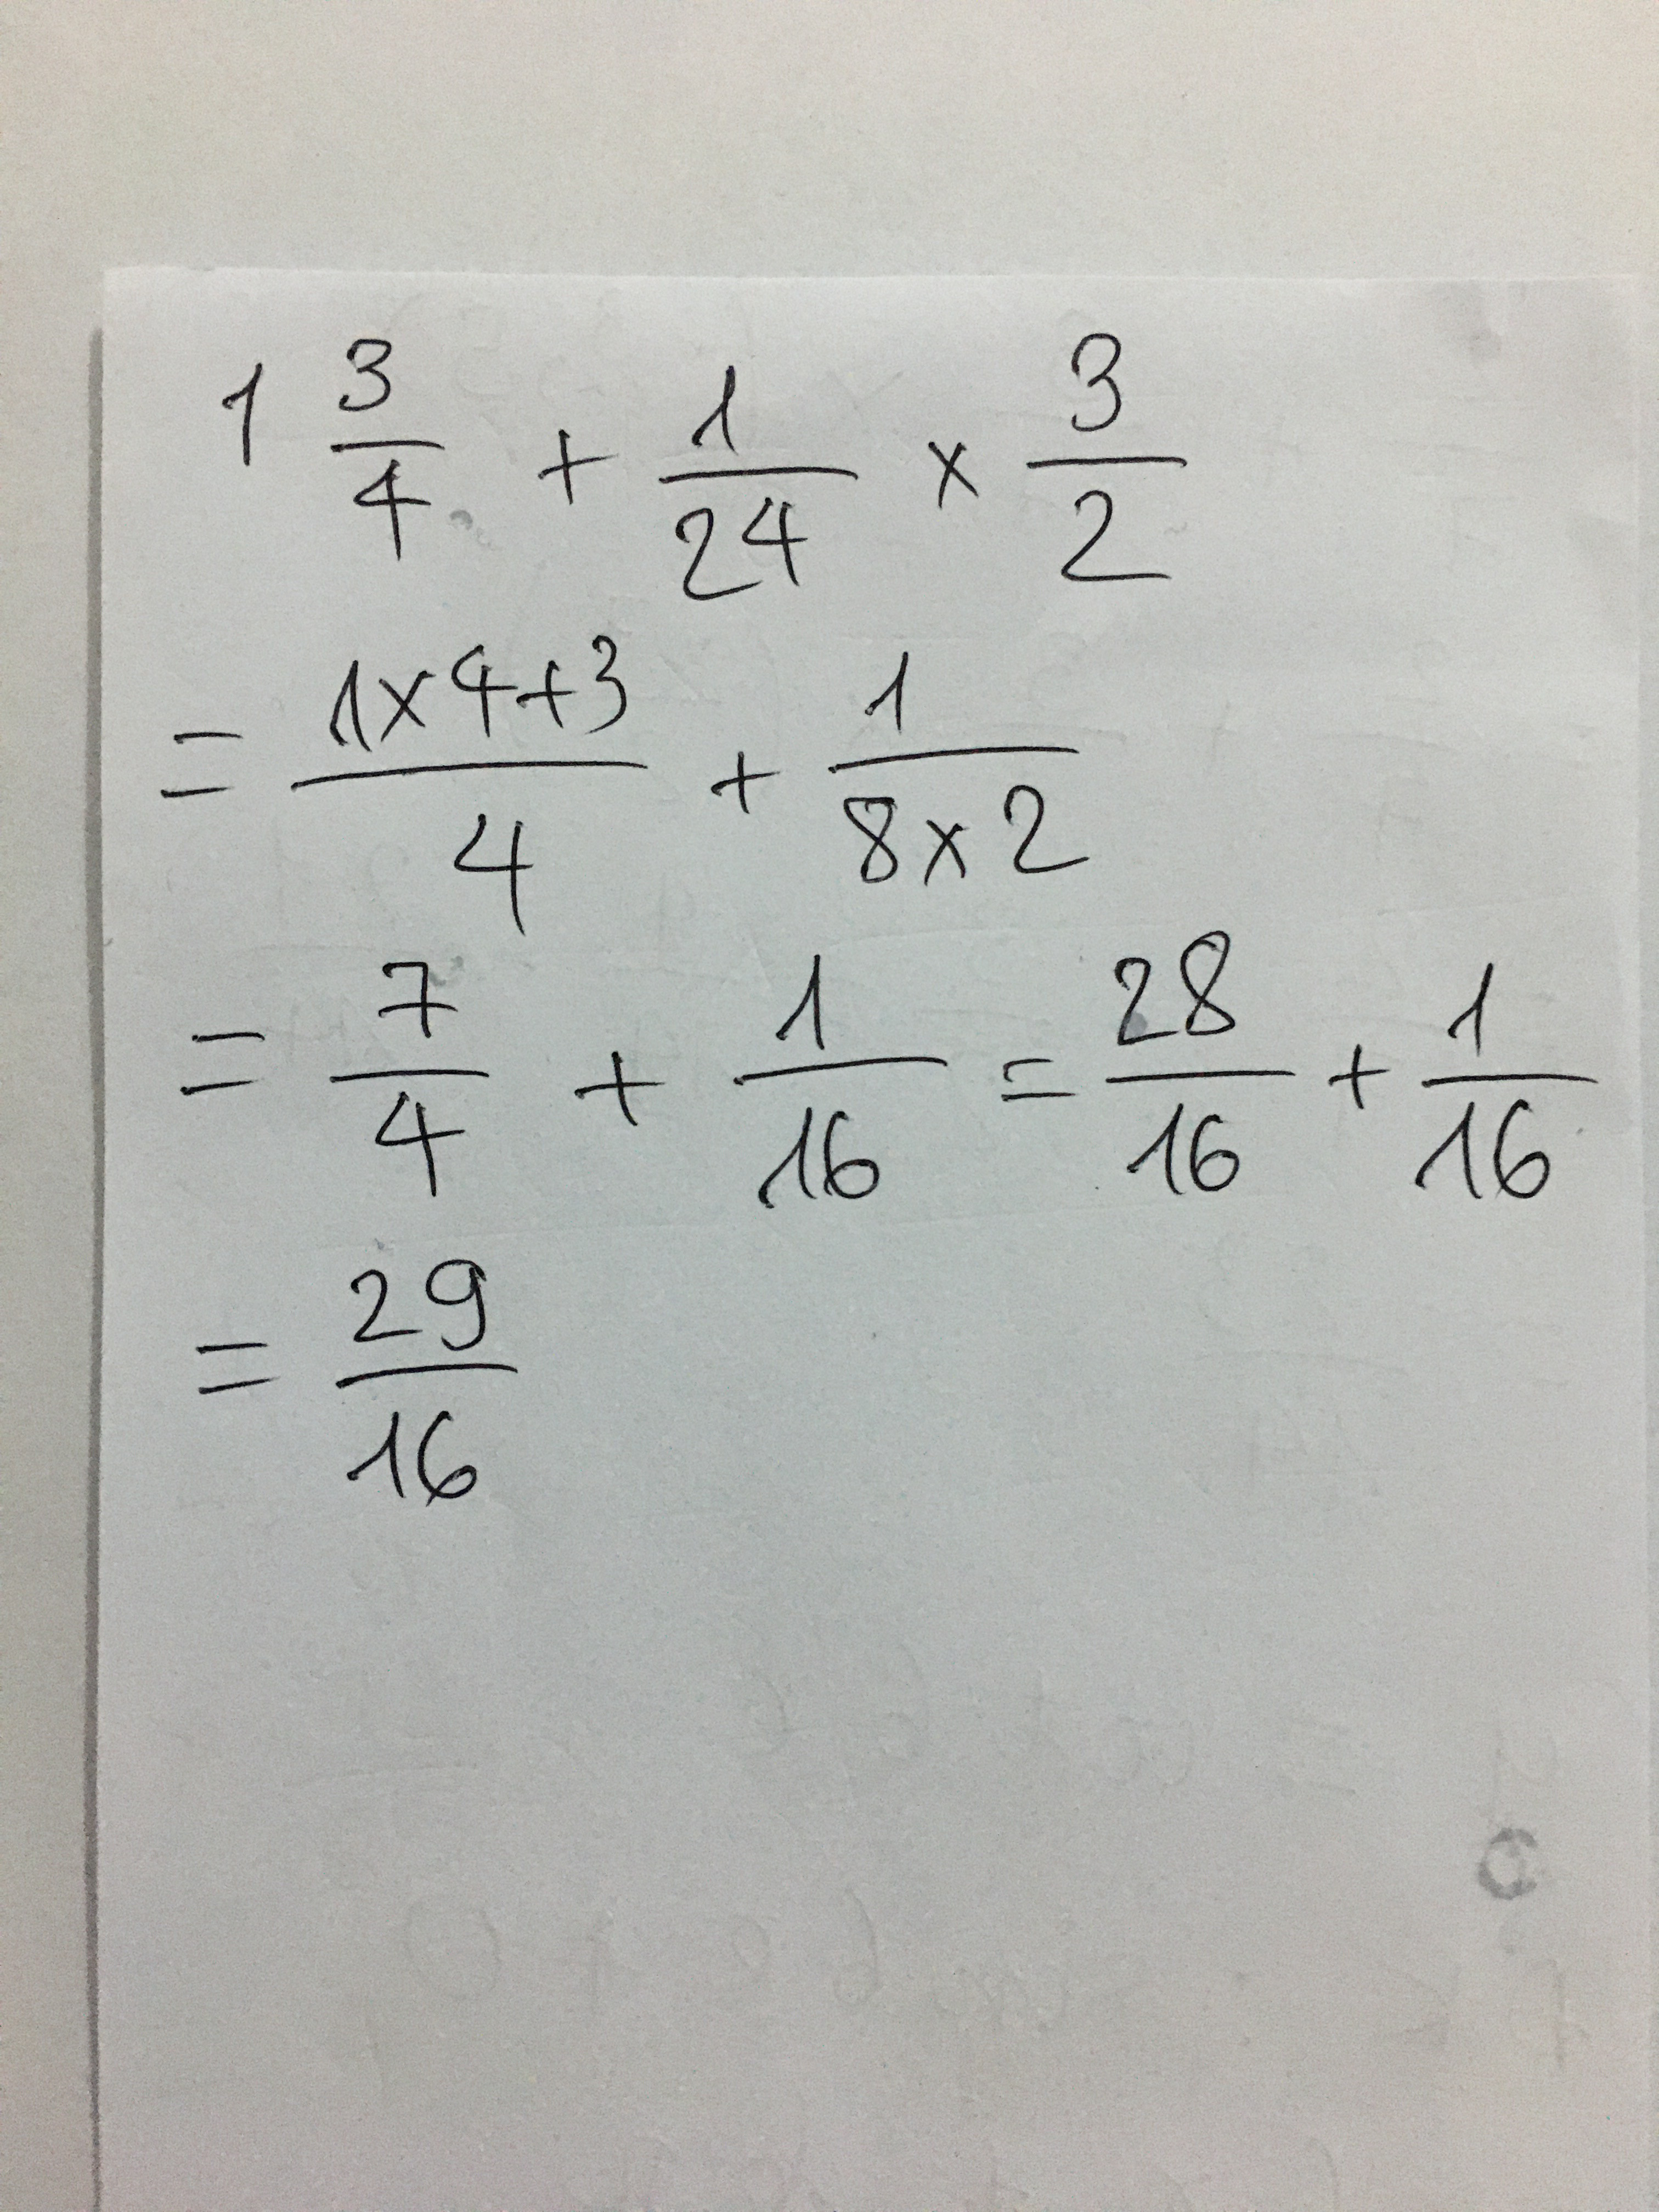 1 3/4 + 1/24 × 3/2
= (1×4+3)/4 + 1/(8×2)
= 7/4 + 1/16 = 28/16 + 1/16
= 29/16